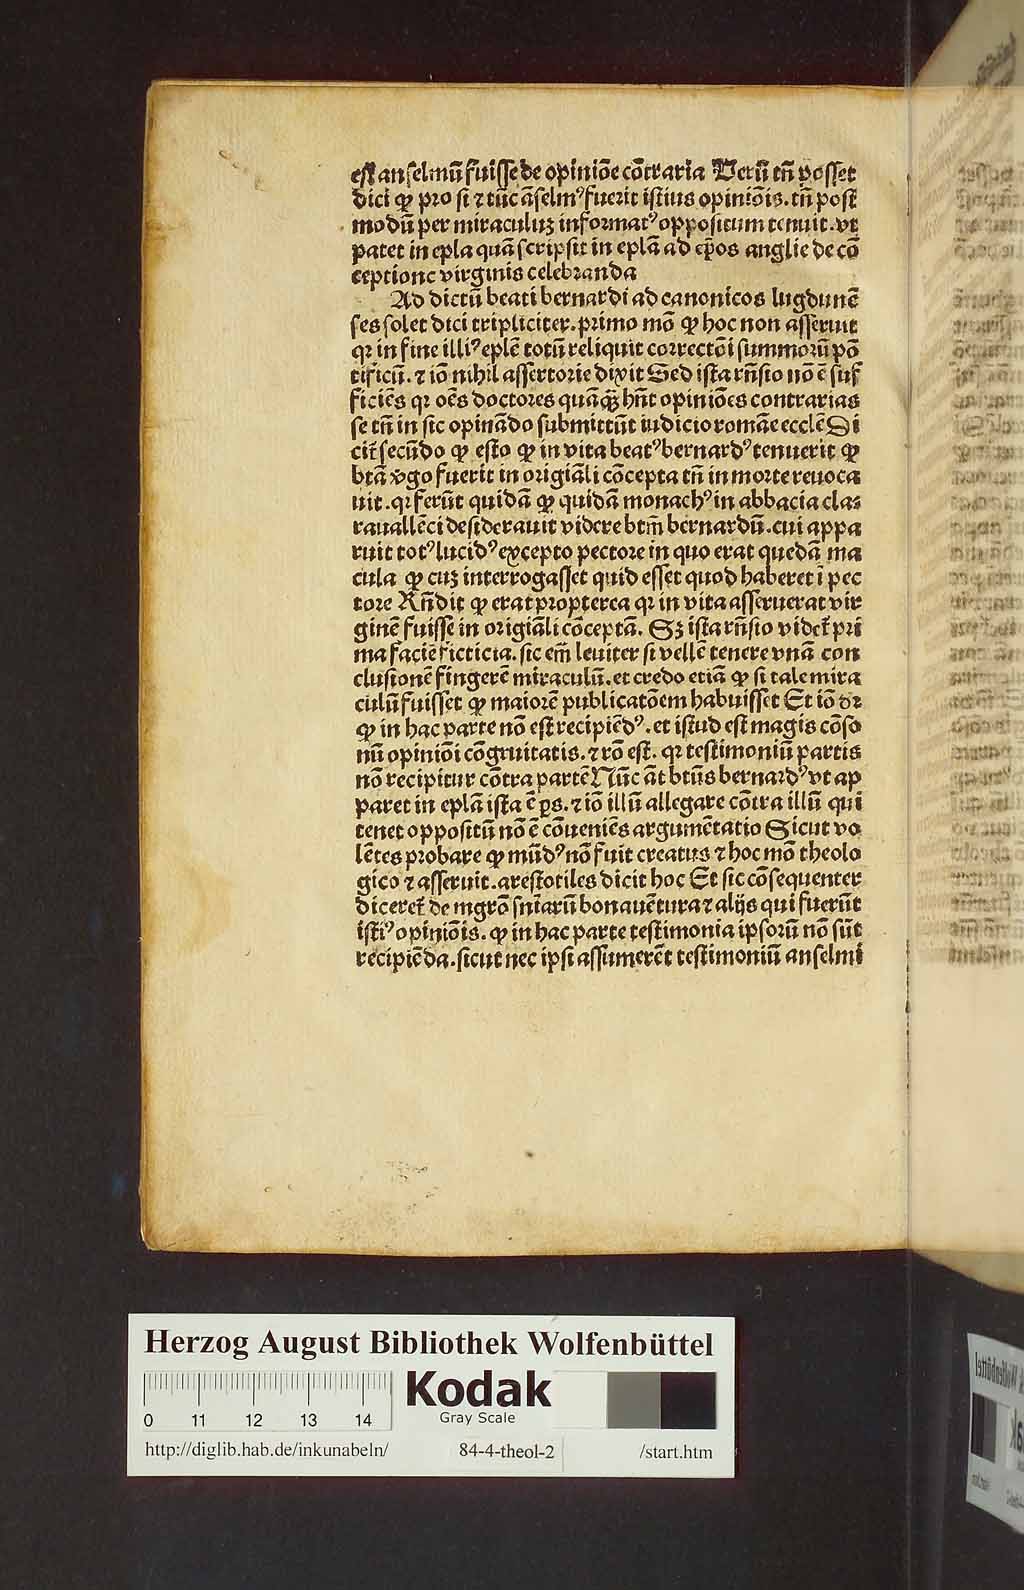 est anselmū fuisse de opiniōe cōtraria Verū tñ posset
dici ꝙ pro si ⁊ tūc āselmꝰ fuerit istius opiniōis. tñ post
modū per miraculuꝫ informatꝰ oppositum tenuit. vt
patet in epla quā scripsit in eplā ad ep̄os anglie de cō
ceptione virginis celebranda
Ad dictū beati bernardi ad canonicos lugdunē
ses solet dici tripliciter. primo mō ꝙ hoc non asseruit
qꝛ in fine illiꝰ eplē totū reliquit correctōi summorū pō
tificū. ⁊ iō nihil assertorie dixit Sed ista rñsio nō ē suf
ficiēs qꝛ oēs doctores quāqꝫ hñt opiniōes contrarias
se tñ in sic opinādo submittūt iudicio romāe ecclē Di
cit̄ secūdo ꝙ esto ꝙ in vita beatꝰ bernardꝰ tenuerit ꝙ
btā v̄go fuerit in origiāli cōcepta tñ in morte reuoca
uit. qꝛ ferūt quidā ꝙ quidā monachꝰ in abbacia clar
rauallēci desiderauit videre btm̄ bernardū. cui appa
ruit totꝰ lucidꝰ excepto pectore in quo erat quedā ma
cula ꝙ cuꝫ interrogasset quid esset quod haberet ī pec
tore Rñdit ꝙ erat propterea qꝛ in vita asseruerat vir
ginē fuisse in origiāli cōceptā. Sꝫ ista rñsio videt̄ pri
ma facie ficticia. sic em̄ leuiter si vellē tenere vnā con
clusionē fingerē miraculū. et credo etiā ꝙ si tale mira
culū fuisset ꝙ maiorē publicatōem habuisset Et iō dꝛ
ꝙ in hac parte nō est recipiēdꝰ. et istud est magis cōso
nū opiniōi cōgruitatis. ⁊ rō est. qꝛ testimoniū partis
nō recipitur cōtra partē Nūc āt btūs bernardꝰ vt ap
paret in eplā ista ē ꝑs. ⁊ iō illū allegare cōtra illū qui
tenet oppositū nō ē cōueniēs argumētatio Sicut vo
lētes probare ꝙ mūdꝰ nō fuit creatus ⁊ hoc mō theolo
gico ⁊ asseruit. arestotiles dicit hoc Et sic cōsequenter
diceret̄ de mgrō sniarū bonauētura ⁊ alijs qui fuerūt
istiꝰ opiniōis. ꝙ in hac parte testimonia ipsorū nō sūt
recipiēda. sicut nec ipsi assumerēt testimoniū anselmi
Herzog August Bibliothek Wolfenbüttel
0 11 12 13 14
Kodak
Gray Scale
http://diglib.hab.de/inkunabeln/ 84-4-theol-2 /start.htm